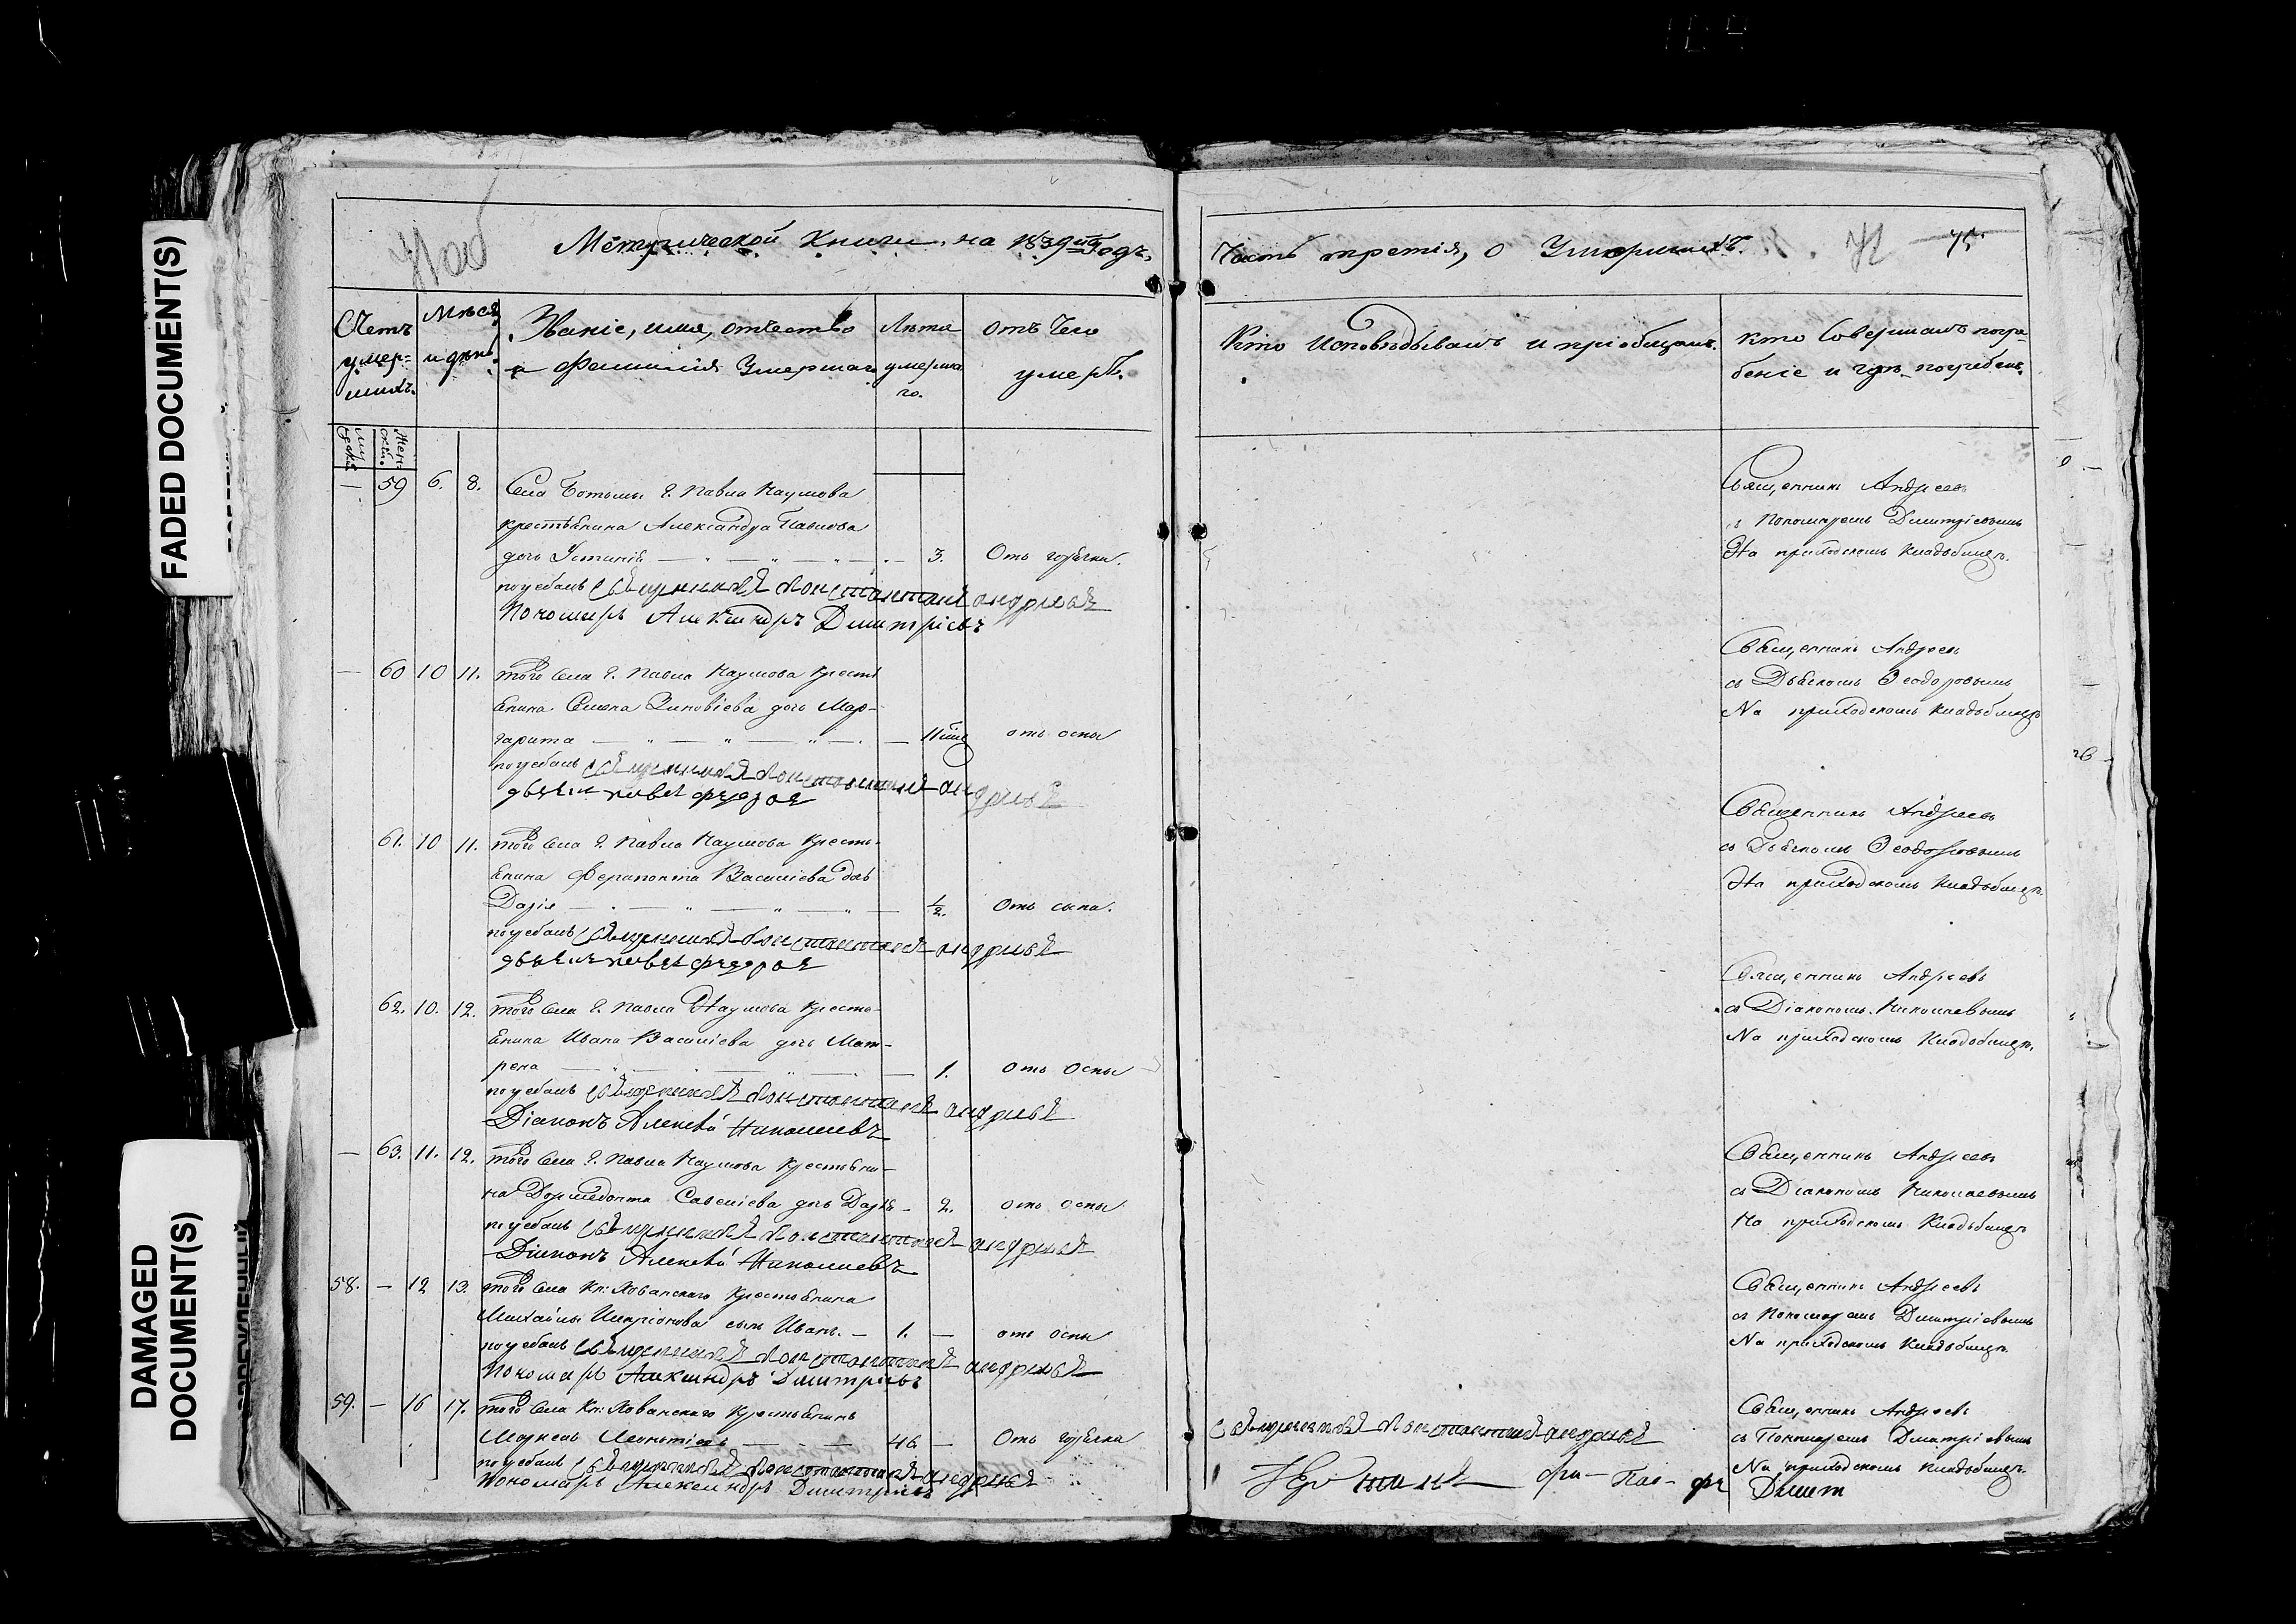 FADED DOCUMENT(S)
DAMAGED
DOCUMENT(S)
Метрической Книги, на 1839й Годъ.
Часть третія, о Умершихъ. 75
Счетъ
умер-
шихъ.
Мѣсяц
и день
Званіе, имя, отчество
и фамилія Умершаго
Лѣта
умерша
го.
Отъ Чего
умеръ.
Кто Исповѣдывалъ и пріобщалъ.
кто Совершалъ погре-
беніе и гдѣ погребенъ.
Муж
Жен
— 59 6. 8. Села Г. Павла Наумова
крестьянина Александра Павлова
дочь Устинія — 3. Отъ горячки.
погребалъ Священникъ Константинъ Андреевъ
Пономарь Александръ Дмитріевъ
Священникъ Андреевъ
съ Пономаремъ Дмитріевымъ
На приходскомъ Кладбищѣ.
— 60 10 11. того Села Г. Павла Наумова Кресть
янина Семена Зиновіева дочь Мар-
гарита — отъ оспы
погребалъ Священникъ Константинъ Андреевъ
Священникъ Андреевъ
съ Дьячкомъ Ѳеодоровымъ
На приходскомъ Кладбищѣ
61. 10 11. того Села Г. Павла Наумова Кресть-
янина Ферапонта Василіева дочь
Дарія — 1/2.
погребалъ Священникъ Константинъ Андреевъ
Священникъ Андреевъ
съ Дьячкомъ Ѳеодоровымъ
На приходскомъ Кладбищѣ.
62. 10. 12. того Села Г. Павла Наумова Кресть-
янина Ивана Василіева дочь Мат-
рена — 1. отъ Оспы
погребалъ Священникъ Константинъ Андреевъ
Діаконъ Алексѣй Николаевъ
Священникъ Андреевъ
съ Діакономъ Николаевымъ
На приходскомъ Кладбищѣ.
— 63. 11. 12. того Села Г. Павла Наумова Крестьяни-
на Дормедонта Савеліева дочь Дарья — 2. отъ оспы
погребалъ Священникъ Константинъ Андреевъ
Діаконъ Алексѣй Николаевъ
Священникъ Андреевъ
съ Діакономъ Николаевымъ
На приходскомъ Кладбищѣ
58. — 12 13. того Села Кн: Хованскаго Крестьянина
Михайлы Иларіонова сынъ Иванъ. — 1. — отъ оспы
погребалъ Священникъ Константинъ Андреевъ
Пономарь Александръ Дмитріевъ
Священникъ Андреевъ
съ Пономаремъ Дмитріевымъ
На приходскомъ Кладбищѣ.
59. — 16 17. того Села Кн: Хованскаго Крестьянинъ
Маркелъ Леонтіевъ — 46 — Отъ горячки
погребалъ Священникъ Константинъ Андреевъ
Пономарь Александръ Дмитріевъ
Священникъ Константинъ Андреевъ
Священникъ Андреевъ
съ Пономаремъ Дмитріевымъ
На приходскомъ Кладбищѣ.
Дмит